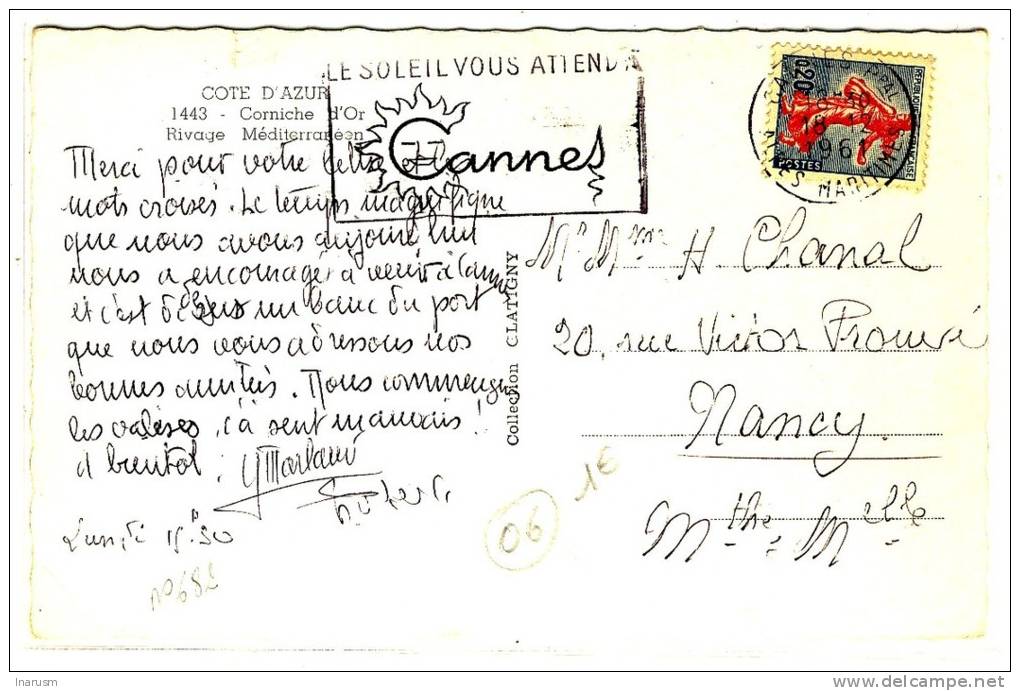 LE SOLEIL VOUS ATTEND À
Cannes
COTE D'AZUR
1443 - Corniche d'Or
Rivage Méditerranéen
Merci pour votre lettre et
mots croisés. Le temps magnifique
que nous avons aujourd'hui
nous a encouragé à venir à Cannes
et c'est un banc du port
que nous vous adressons nos
bonnes amitiés. Nous commençons
les valises, çà sent mauvais !
A bientôt.
Lundi 15h30
n°682
Collection CLATIGNY
0,20
POSTES
18
1961
ALPES MARITIMES
Mr Mme H. Chanal
20, rue Victor Prouvé
Nancy.
Mthe = Melle
06
1€
Inarusm
http://www.delcampe.net